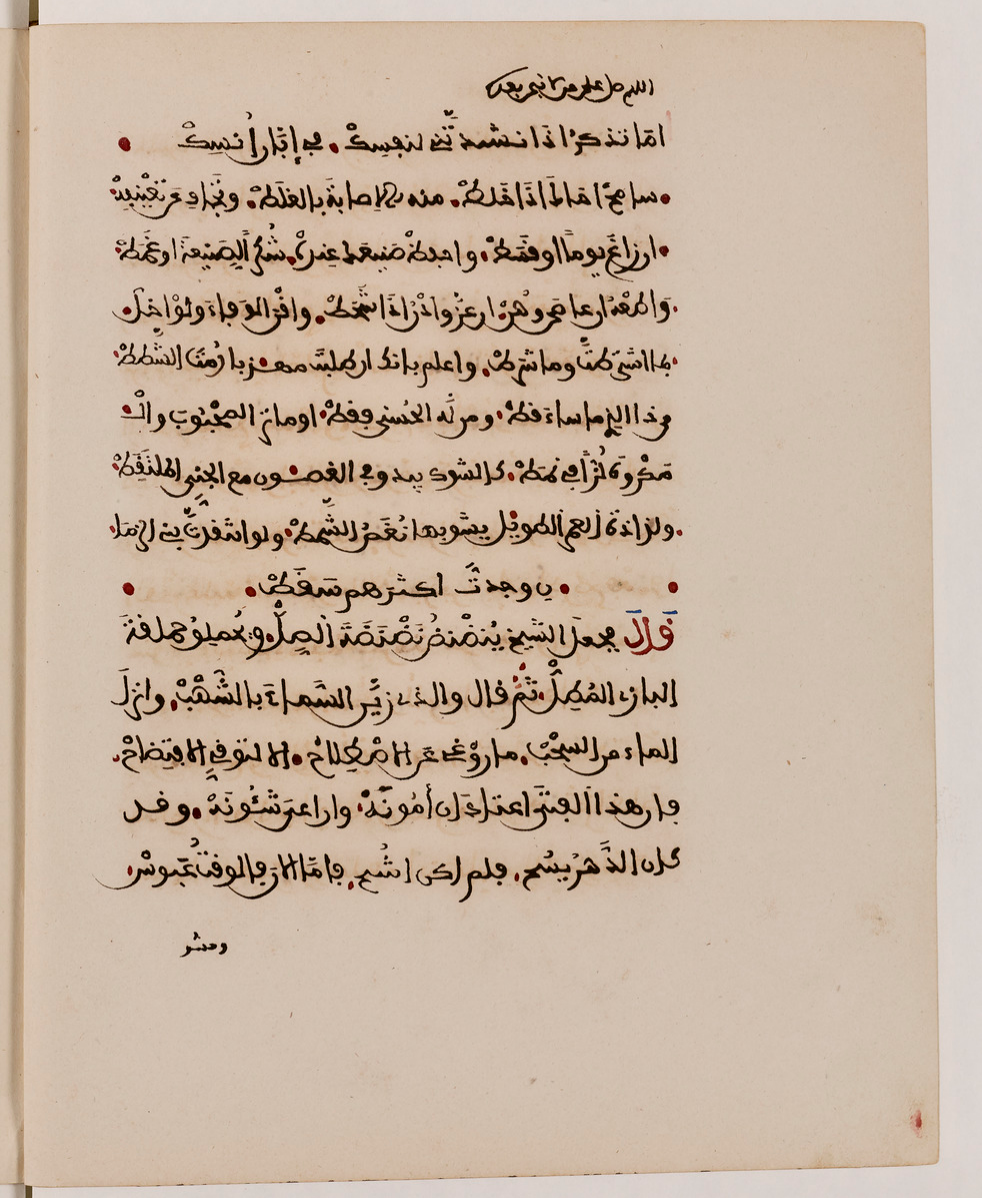 اللهم صل على من لا نبي بعده
اما تذكر اذ انشدتّني لنفسك. في إبّان أُنسك
سامح اخاك اذا خلط. منه الاصابة بالغلط. وتجاف عن تعنيفه
ان زاغ يوما او قسط. واحفظ صنيعك عنده. شكر الصنيعة او غمط
واطعه ان عاصى وهن. ان عز وادن اذا شحط. واقن الوفاء ولو اخل
بما اشترطت وما شرط. واعلم بانك ان طلبت مهذبا رمت الشطط
من ذا الذي ما ساء قط. ومن له الحسنى فقط. او ما ترى المحبوب والـ
مكروه لزا في نمط. كالشوك يبدو في الغصون مع الجني الملتقط
ولذاذة العمر الطويل يشوبها نغص الشمط. ولو انتقدت بني الزما
ن وجدتّ اكثرهم سقط
قال فجعل الشيخ ينضنض نضنضة الصل. ويحملق حملقة
البازي المطل. ثم قال والذي زين السماء بالشهب. وانزل
الماء من السحب. ما روغي عن الاصطلاح. الا لتوقي الافتضاح.
فان هذا الفتى اعتاد ان أمونه. واراعي شئونه. وقد
كان الدهر يسح. فلم اكن اشح. فاما الان فالوقت عبوس.
وحشو